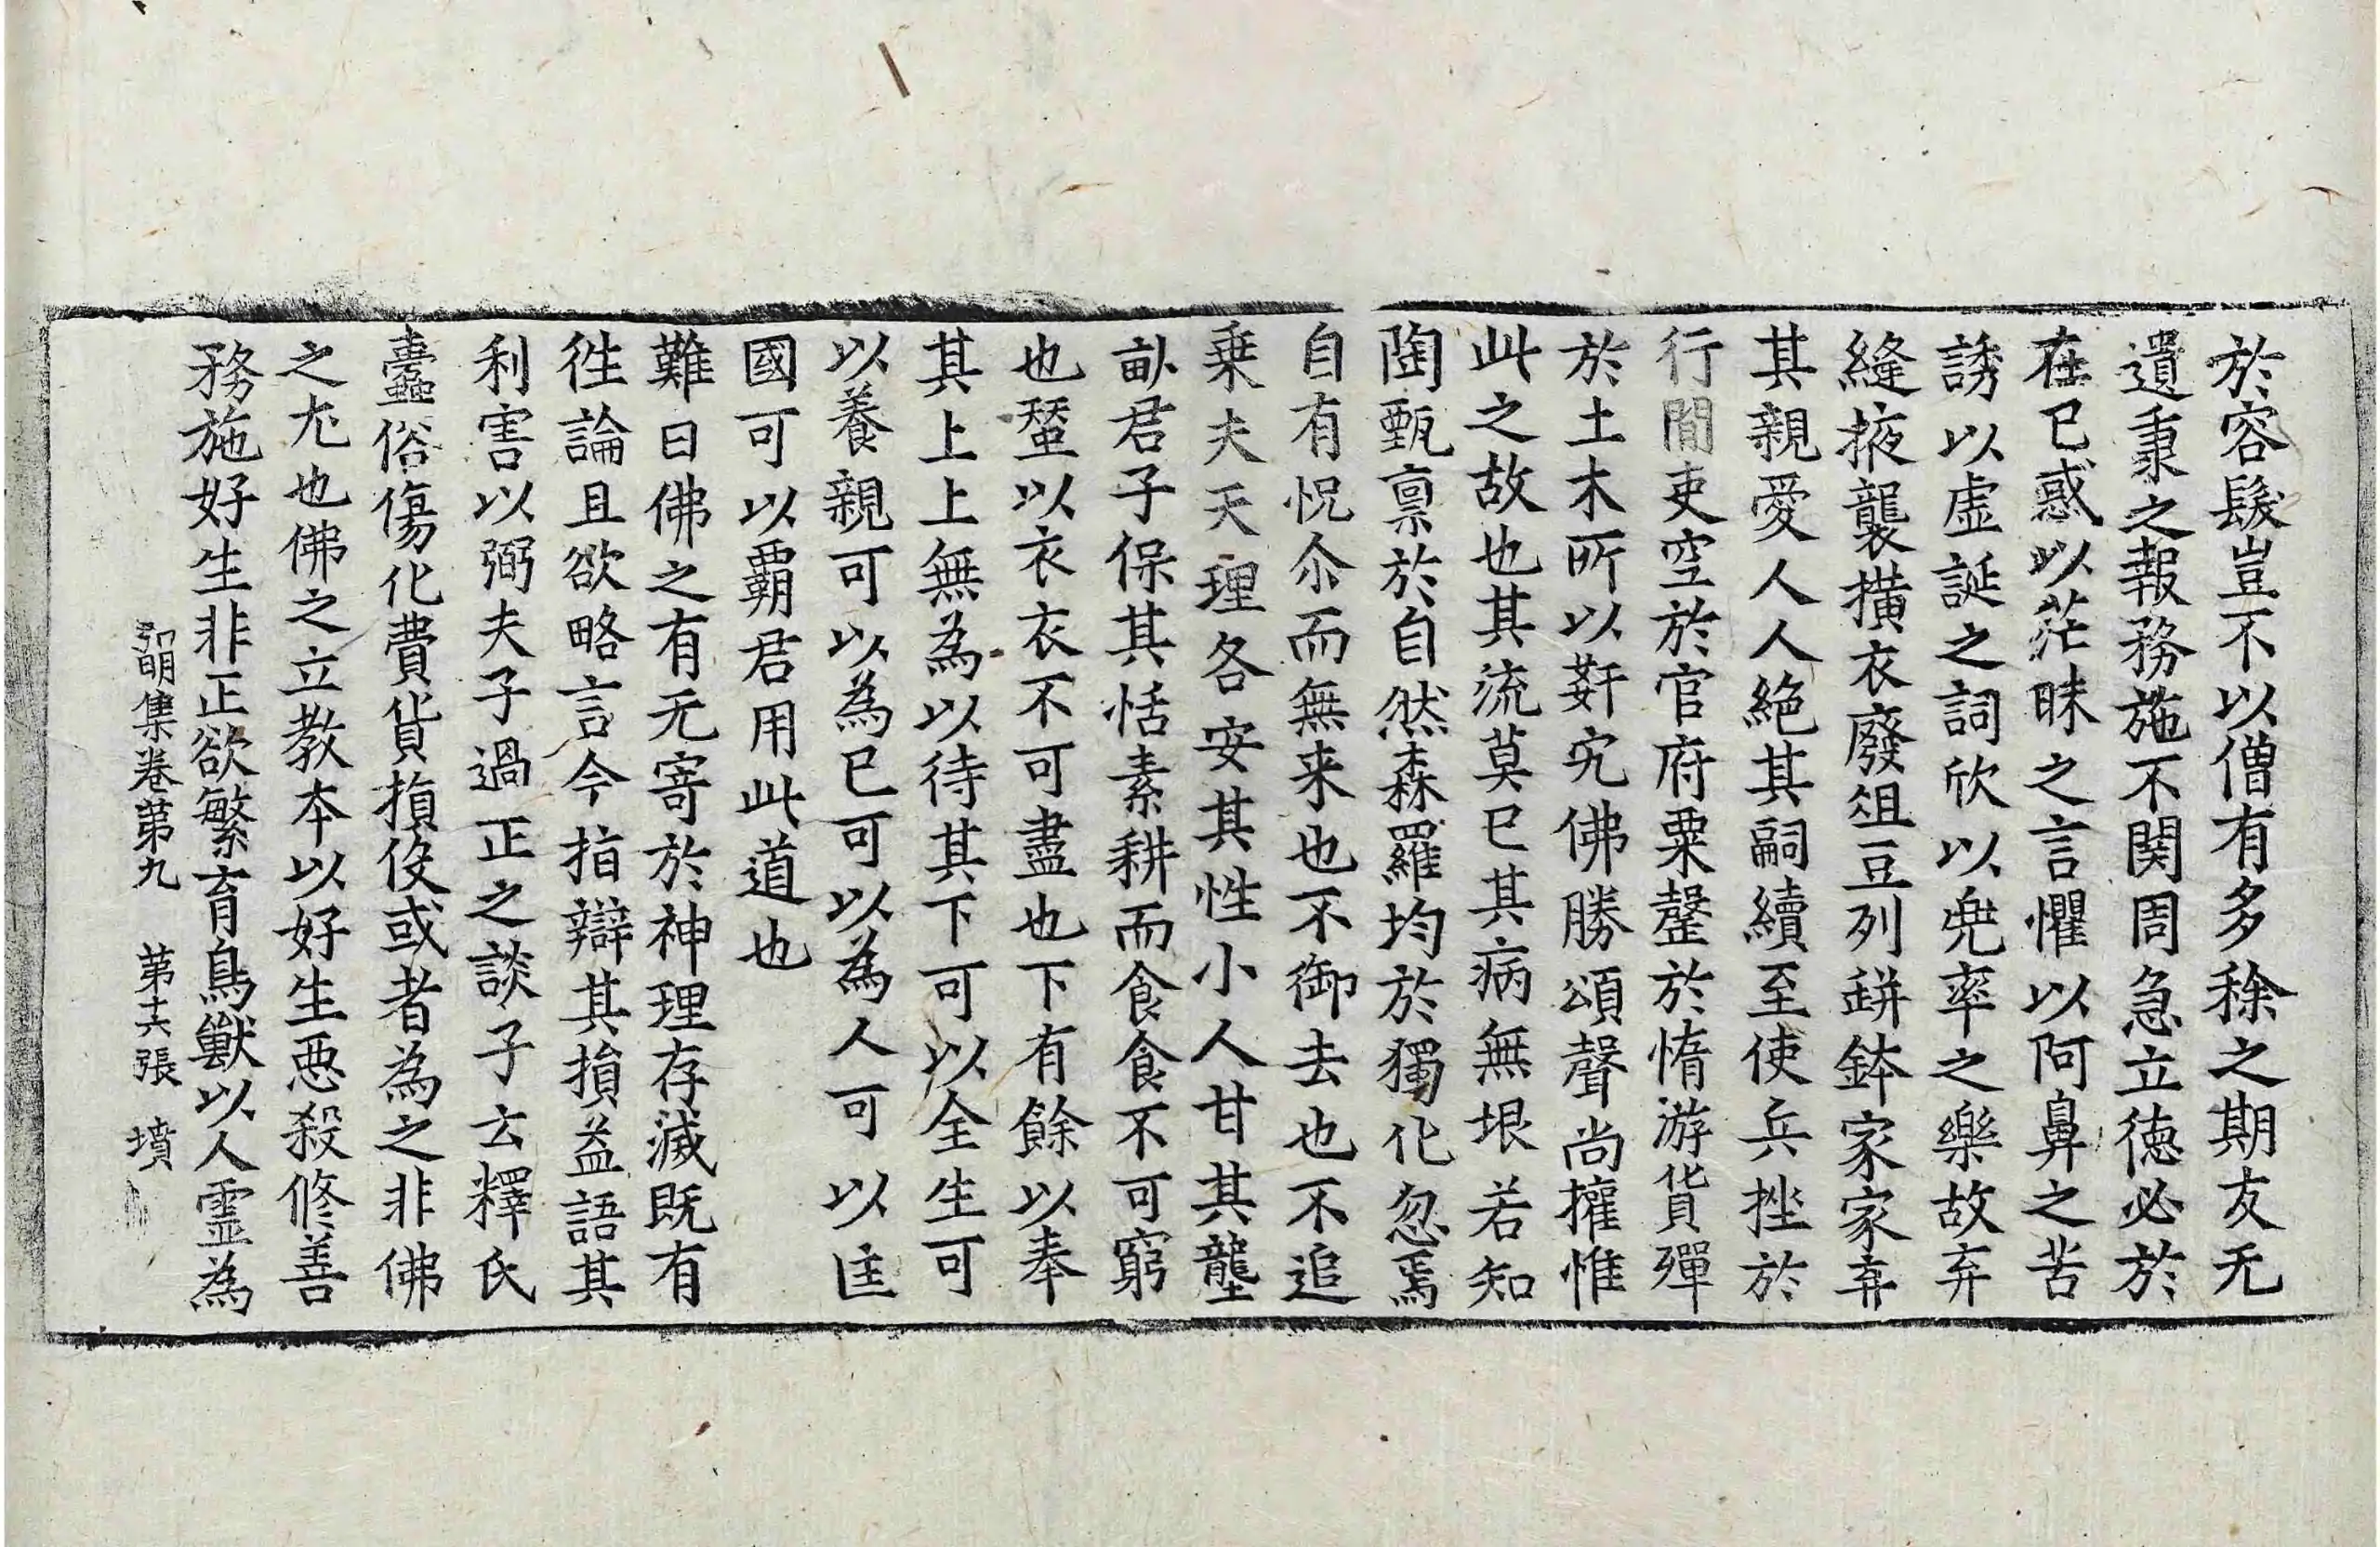 於容髮豈不以僧有多稌之期友无
遺秉之報務施不関周急立徳必於
在已惑以茫昧之言懼以阿鼻之苦
誘以虛誕之詞欣以兠率之樂故弃
縫掖襲橫衣廢俎豆列缾鉢家家弃
其親愛人人絶其嗣續至使兵挫於
行間吏空於官府粟罄於惰游貨殫
於土木所以姧宄佛勝頌聲尚擁惟
此之故也其流莫已其病無垠若知
陶甄禀於自然森羅均於獨化忽焉
自有怳尒而無来也不御去也不追
乗夫天理各安其性小人甘其壟
畝君子保其恬素耕而食食不可窮
也蝅以衣衣不可盡也下有餘以奉
其上上無為以待其下可以全生可
以養親可以為已可以為人可以匡
國可以霸君用此道也
難曰佛之有无寄於神理存滅既有
徃論且欲略言今指辯其損益語其
利害以弼夫子過正之談子云釋氏
蠹俗傷化費貨損伇或者為之非佛
之尤也佛之立教本以好生惡殺修善
務施好生非正欲繁育鳥獸以人霊為
弘明集卷第九　第十六張　墳